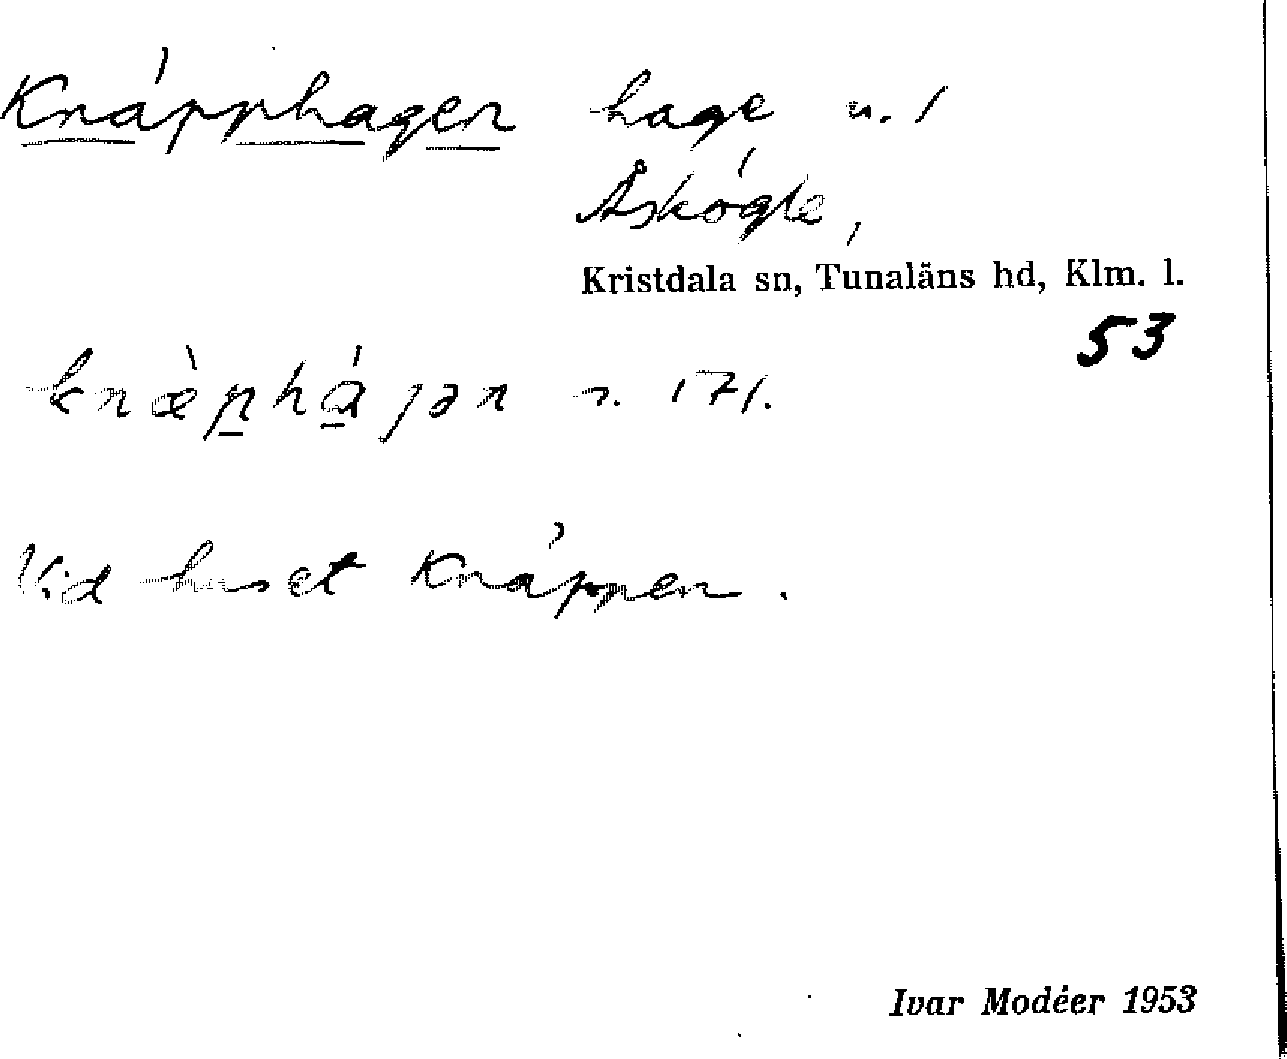 Knäpphagen hage u. 1
Åskögle,
Kristdala sn, Tunaläns hd, Klm. l.
53
knæ̀phájən s. 171.
Vid huset Knäppen.
Ivar Modéer 1953